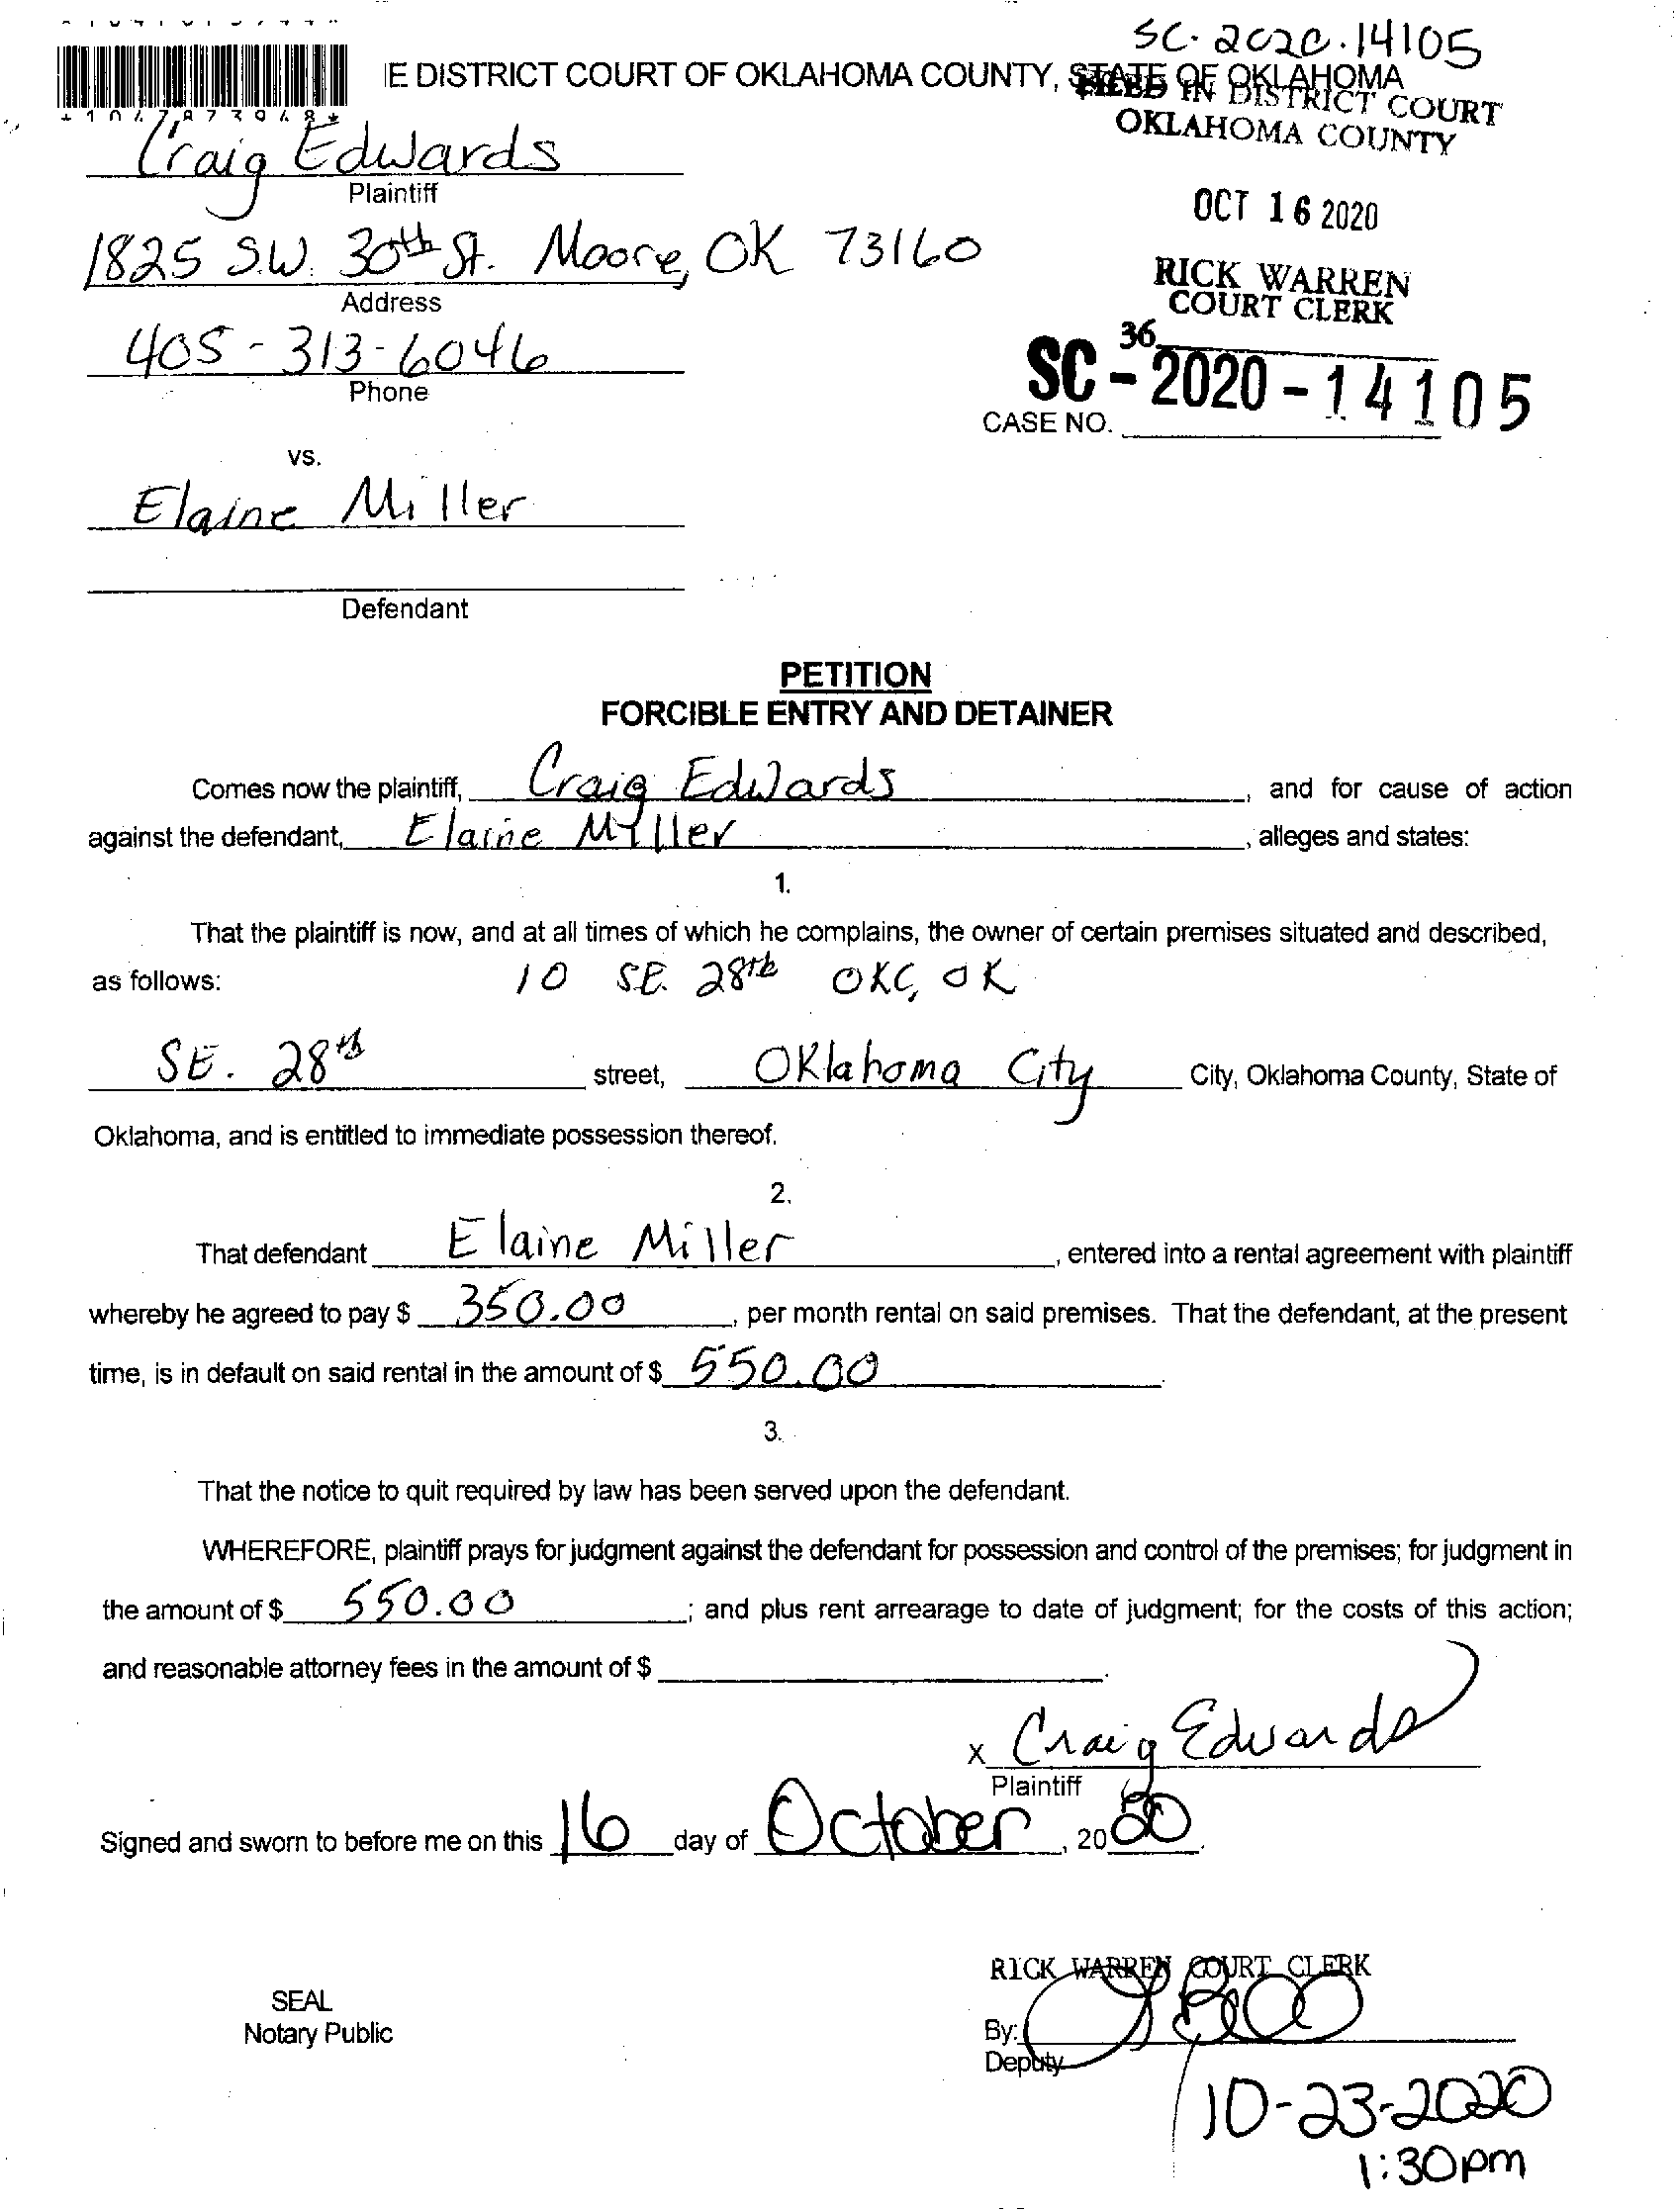 SC-2020-14105
IE DISTRICT COURT OF OKLAHOMA COUNTY, STATE OF OKLAHOMA
FILED IN DISTRICT COURT
OKLAHOMA COUNTY
Craig Edwards
Plaintiff
OCT 16 2020
1825 S.W. 30th St. Moore, OK 73160
Address
RICK WARREN
COURT CLERK
405-313-6046
Phone
36
SC-2020-14105
CASE NO.
vs.
Elaine Miller
Defendant
PETITION
FORCIBLE ENTRY AND DETAINER
Comes now the plaintiff, Craig Edwards, and for cause of action
against the defendant, Elaine Miller, alleges and states:
1.
That the plaintiff is now, and at all times of which he complains, the owner of certain premises situated and described,
as follows: 10 SE. 28th OKC, OK
SE. 28th street, Oklahoma City City, Oklahoma County, State of
Oklahoma, and is entitled to immediate possession thereof.
2.
That defendant Elaine Miller, entered into a rental agreement with plaintiff
whereby he agreed to pay $ 350.00, per month rental on said premises. That the defendant, at the present
time, is in default on said rental in the amount of $ 550.00.
3.
That the notice to quit required by law has been served upon the defendant.
WHEREFORE, plaintiff prays for judgment against the defendant for possession and control of the premises; for judgment in
the amount of $ 550.00; and plus rent arrearage to date of judgment; for the costs of this action;
and reasonable attorney fees in the amount of $ .
x Craig Edwards
Plaintiff
Signed and sworn to before me on this 16 day of October, 2020.
RICK WARREN COURT CLERK
SEAL
Notary Public
By:
Deputy
10-23-2020
1:30pm